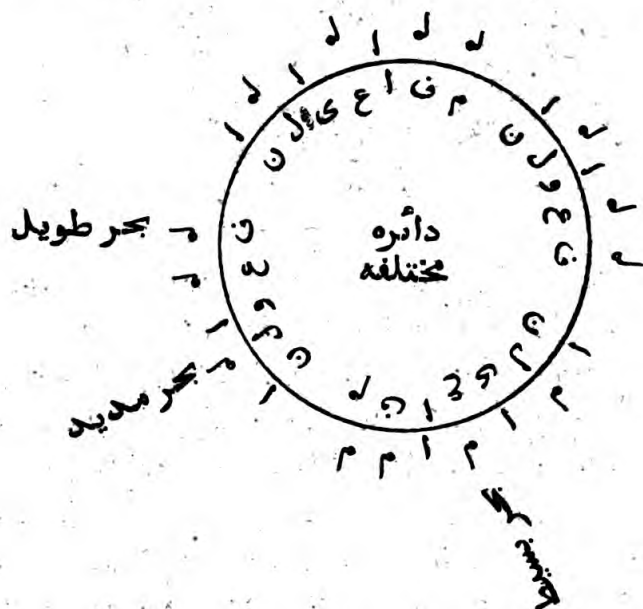 دائره
مختلفه
بحر طويل
بحر مديد
بحر بسيط
ف ع و ل ن
م ف ا ع ى ل ن
ف ع و ل ن
م ف ا ع ى ل ن